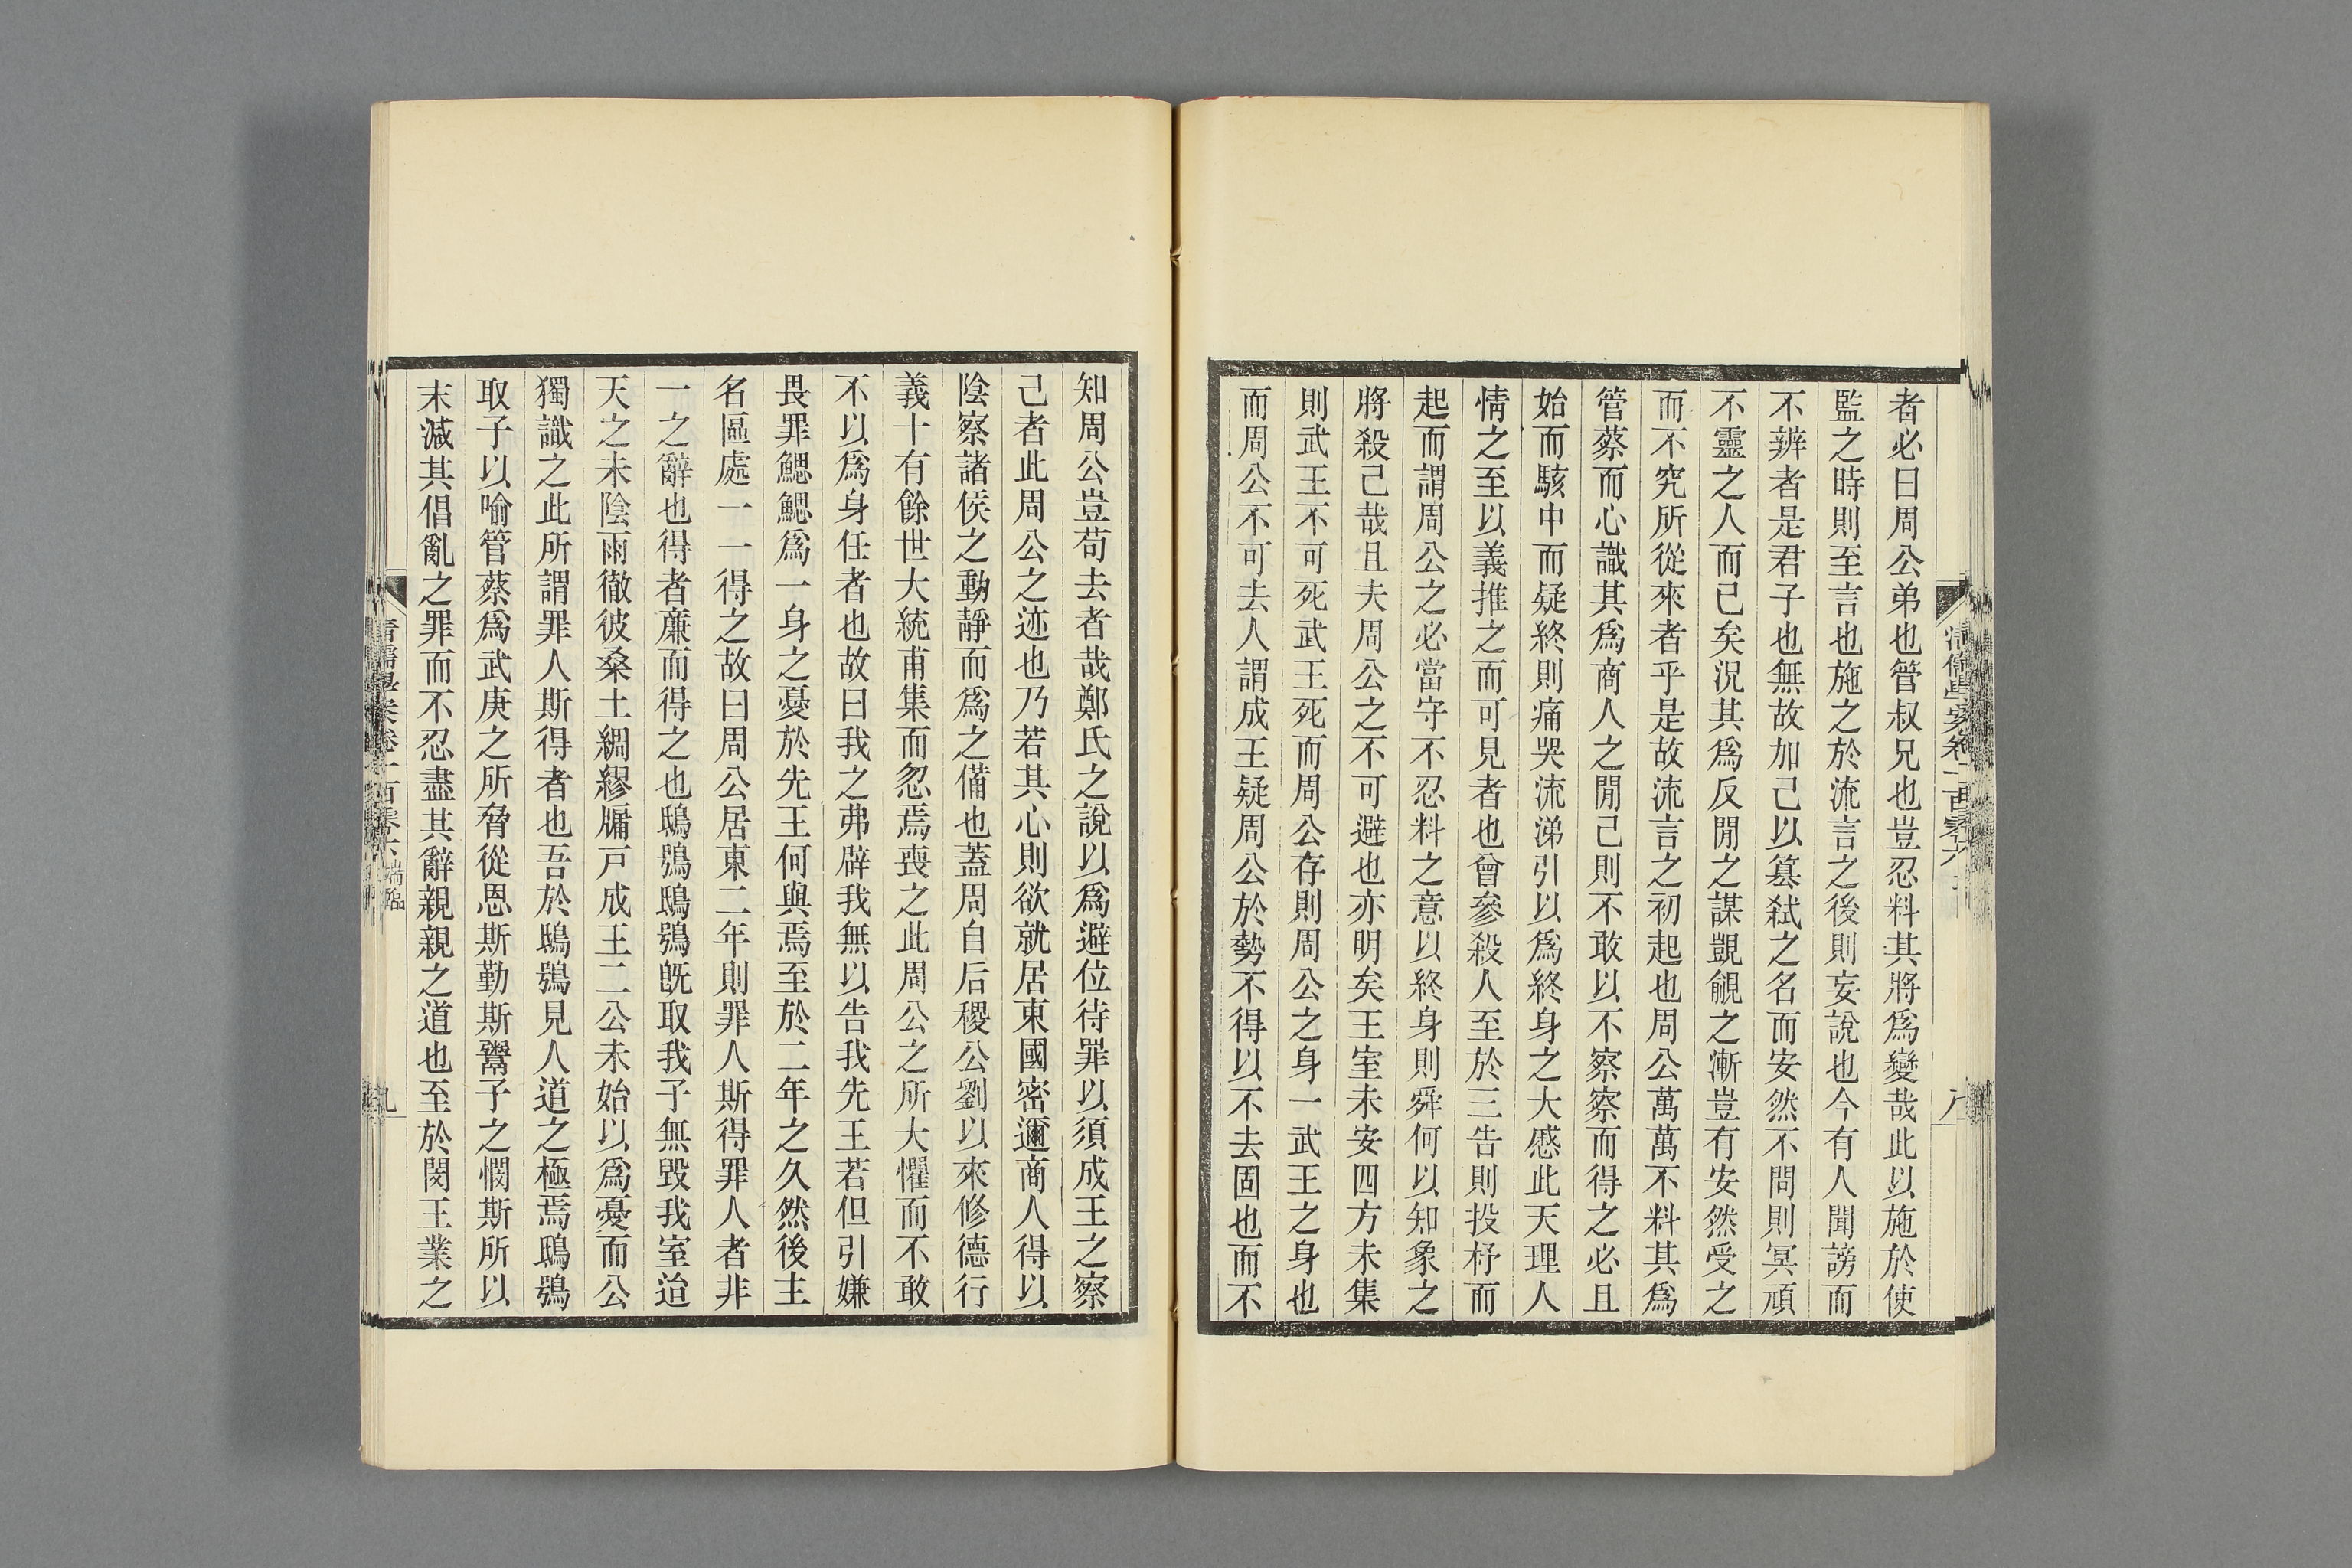 者必曰周公弟也管叔兄也豈忍料其將爲變哉此以施於使
監之時則至言也施之於流言之後則妄說也今有人聞謗而
不辨者是君子也無故加己以簒弑之名而安然不問則冥頑
不靈之人而已矣況其爲反閒之謀覬覦之漸豈有安然受之
而不究所從來者乎是故流言之初起也周公萬萬不料其爲
管蔡而心識其爲商人之閒己則不敢以不察察而得之必且
始而駭中而疑終則痛哭流涕引以爲終身之大慼此天理人
情之至以義推之而可見者也曾參殺人至於三告則投杼而
起而謂周公之必當守不忍料之意以終身則舜何以知象之
將殺己哉且夫周公之不可避也亦明矣王室未安四方未集
則武王不可死武王死而周公存則周公之身一武王之身也
而周公不可去人謂成王疑周公於勢不得以不去固也而不
清儒學案卷一百零六
八
知周公豈苟去者哉鄭氏之說以爲避位待罪以須成王之察
己者此周公之迹也乃若其心則欲就居東國密邇商人得以
陰察諸侯之動靜而爲之備也蓋周自后稷公劉以來修德行
義十有餘世大統甫集而忽焉喪之此周公之所大懼而不敢
不以爲身任者也故曰我之弗辟我無以告我先王若但引嫌
畏罪鰓鰓爲一身之憂於先王何與焉至於二年之久然後主
名區處一一得之故曰周公居東二年則罪人斯得罪人者非
一之辭也得者廉而得之也鴟鴞鴟鴞旣取我子無毀我室迨
天之未陰雨徹彼桑土綢繆牖戸成王二公未始以爲憂而公
獨識之此所謂罪人斯得者也吾於鴟鴞見人道之極焉鴟鴞
取子以喻管蔡爲武庚之所脅從恩斯勤斯鬻子之憫斯所以
末減其倡亂之罪而不忍盡其辭親親之道也至於閔王業之
清儒學案卷一百零六
九